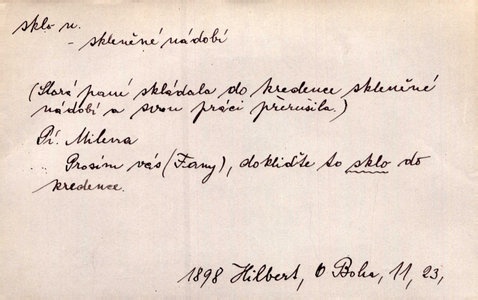 sklo n.
- skleněné nádobí
(Stará paní skládala do kredence skleněné
nádobí a svou práci přerušila.)
Pí. Milena
.. Prosím vás (Fany), dokliďte to sklo do
kredence.
1898 Hilbert, O Boha, 11, 23,